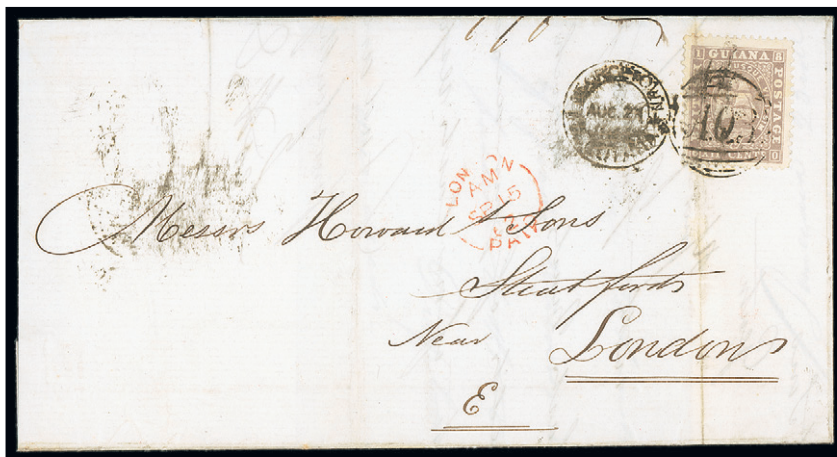 GUIANA
POSTAGE
A03
AUG 27
LONDON
AM
SP 15
PAID
Messrs Howard & Sons
Stratford
Near London
E